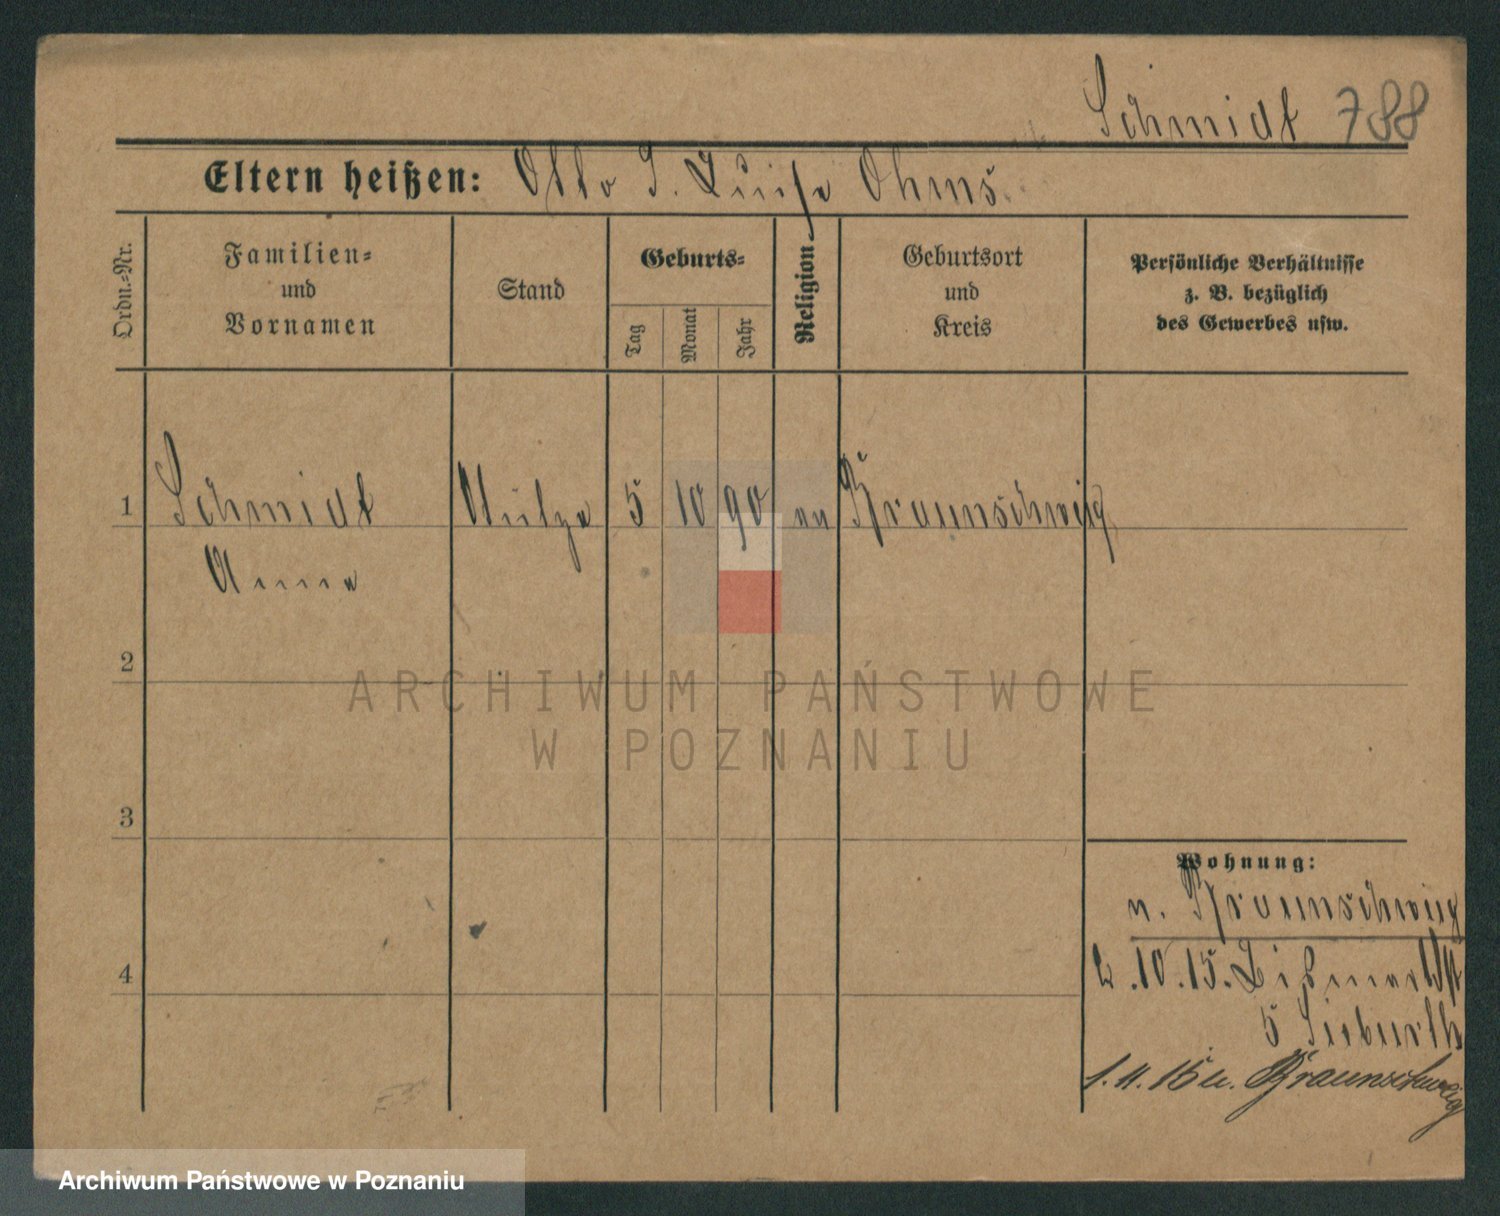 Schmidt 788
Eltern heißen: Otto S. Luise Ohms.
Ordn.-Nr.
Familien-
und
Vornamen
Stand
Geburts-
Tag
Monat
Jahr
Religion
Geburtsort
und
Kreis
Persönliche Verhältnisse
z. B. bezüglich
des Gewerbes usw.
1 Schmidt 5 10 90 Braunschweig
Anna
2
ARCHIWUM PAŃSTWOWE
W POZNANIU
3
Wohnung:
n. Braunschweig
4
2.10.15. Bismarckst
5 Sieburth
1.11.15 n. Braunschweig
Archiwum Państwowe w Poznaniu